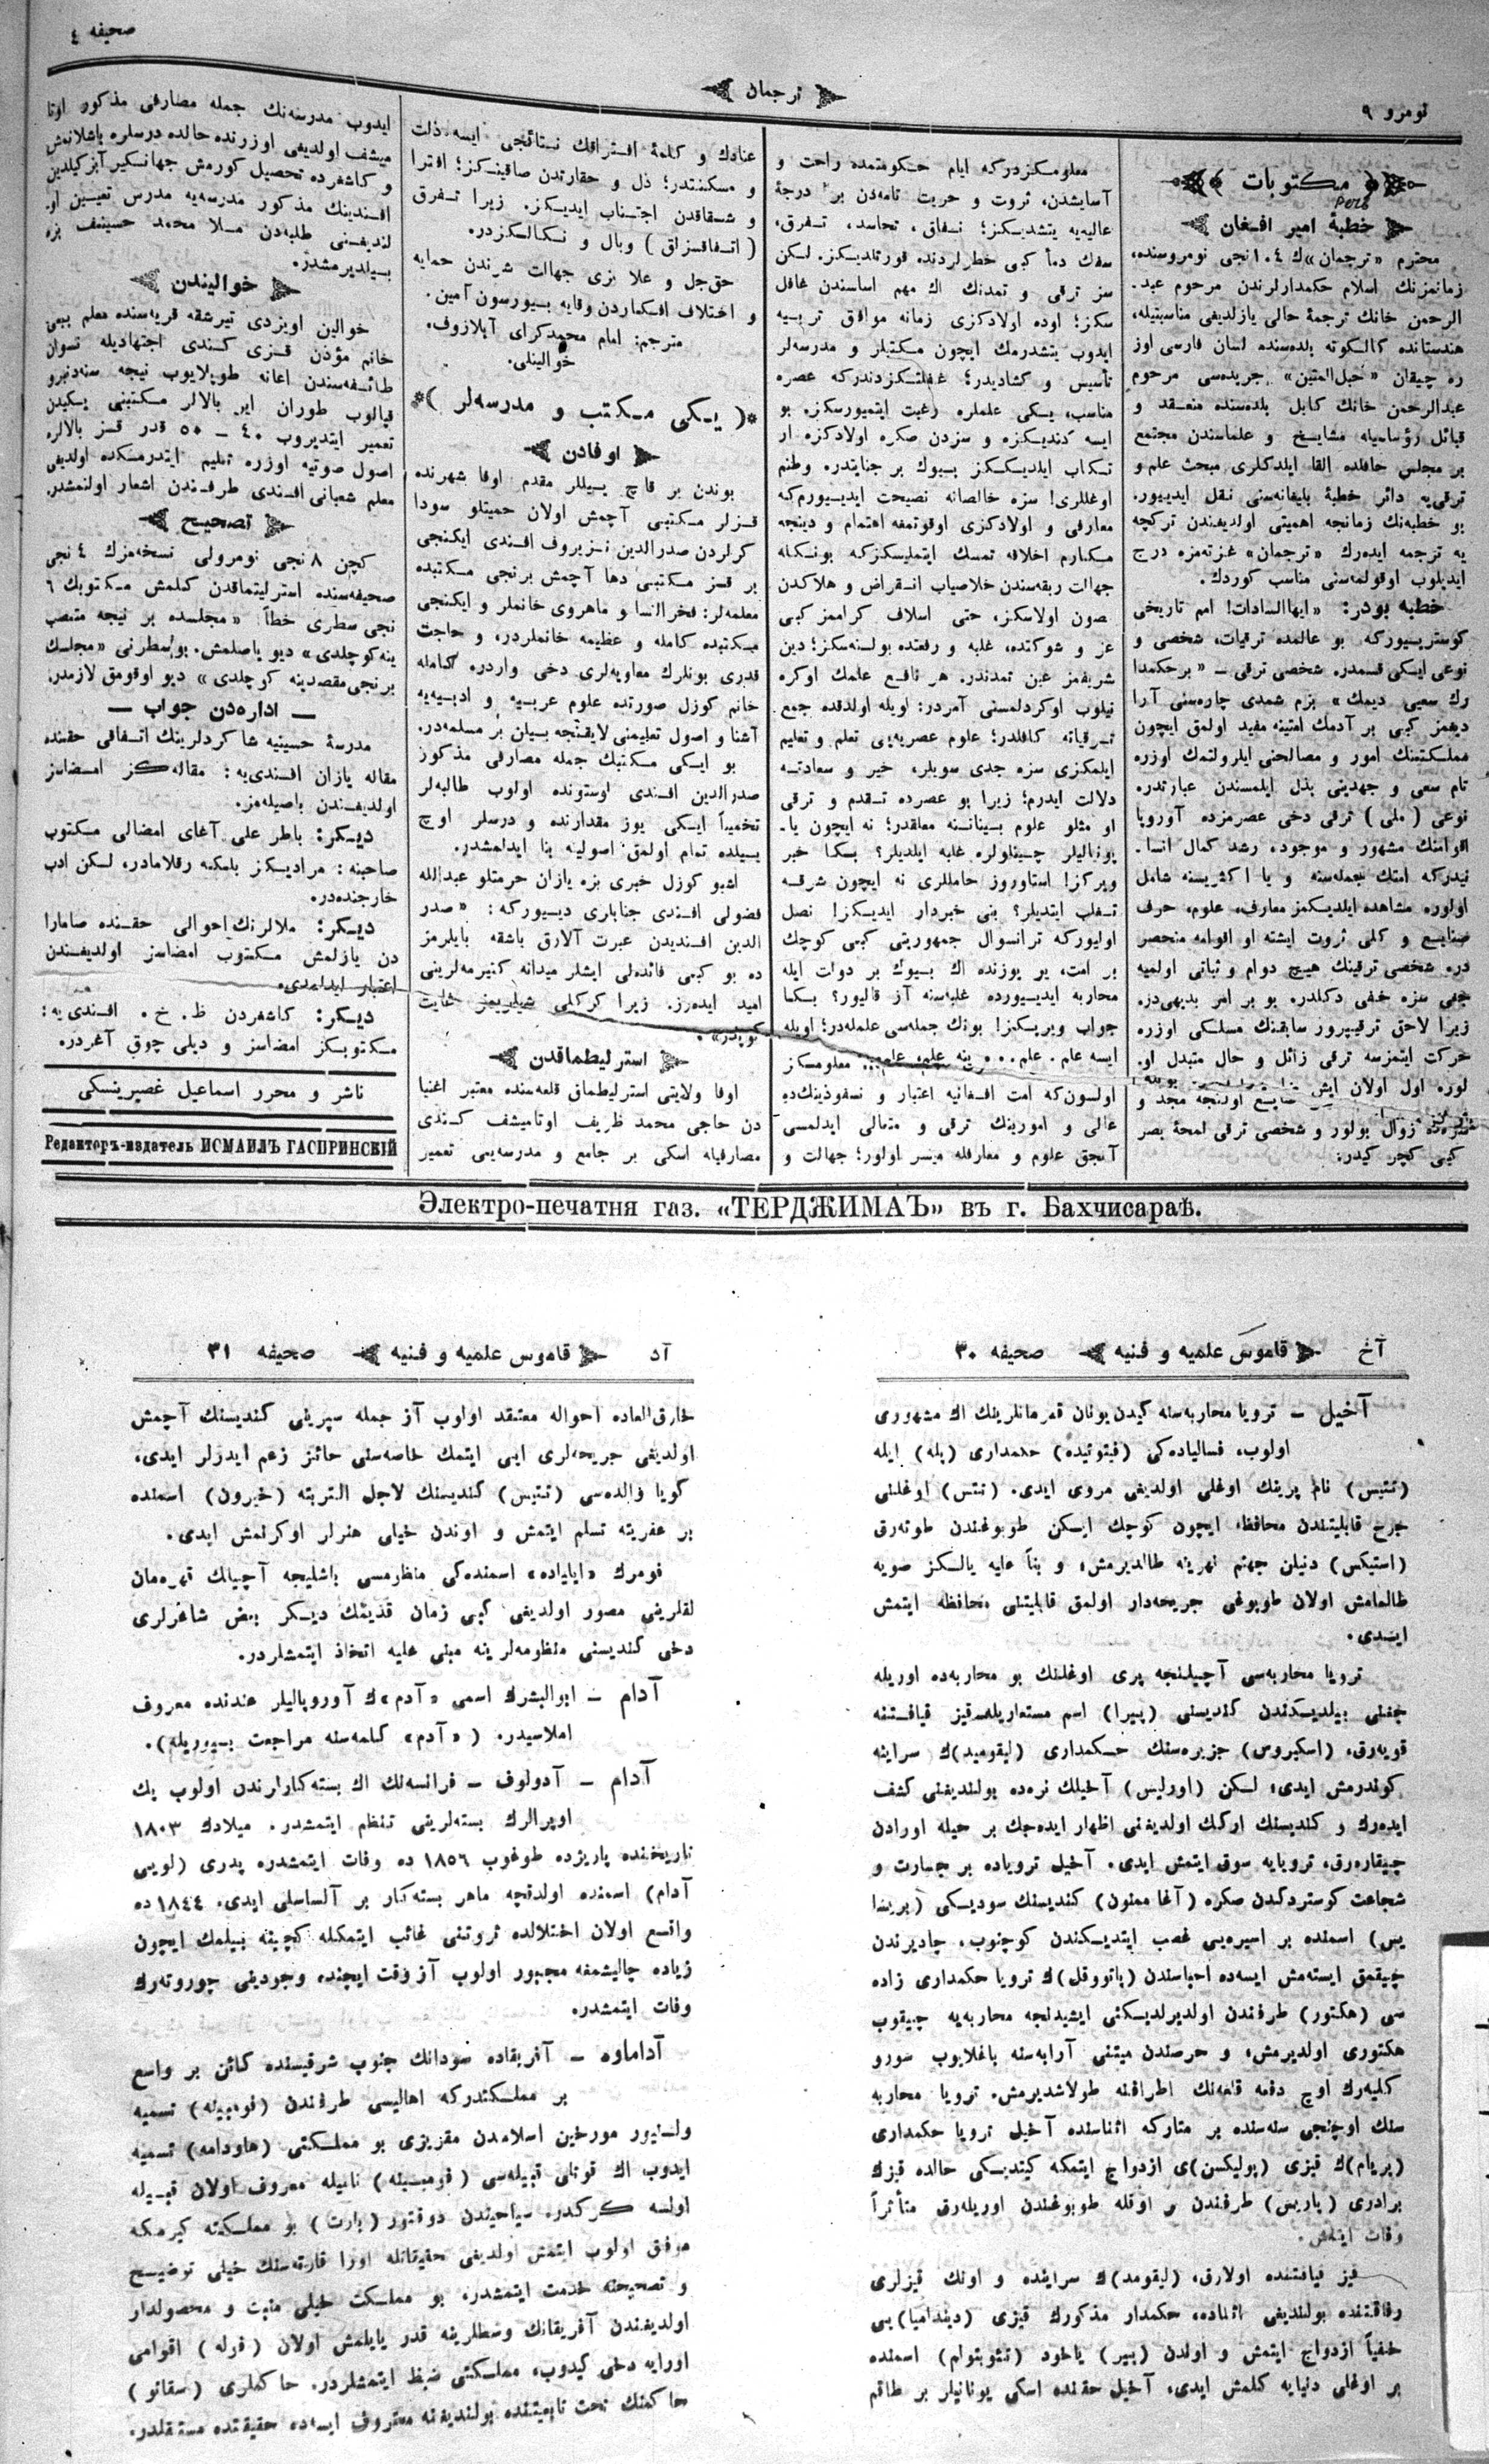 نومرو ٩
ترجمان
صحیفه ٤
مكتوبات
خطبهٔ امیر افغان
محترم «ترجمان»ك ١٠٤نجی نومروسنده،
زمانمزنك اسلام حكمدارلرندن مرحوم عبد-
الرحمن خانك ترجمهٔ حالی یازلدیغی مناسبتیله،
هندستانده كالكوته بلده‌سنده لسان فارسی اوز
ره چیقان «حبل‌المتین» جریده‌سی مرحوم
عبدالرحمن خانك كابل بلده‌سنده منعقد و
قبائل رؤساسیله مشایخ و علماسندن مجتمع
بر مجلس حافلده القا ایلدكلری مبحث علم و
ترقی‌یه دائر خطبهٔ بلیغانه‌سنی نقل ایدییور.
بو خطبه‌نك زمانجه اهمیتی اولدیغندن تركچه
یه ترجمه ایده‌رك «ترجمان» غزته‌مزه درج
ایدیلوب اوقولمه‌سنی مناسب كوردك.
خطبه بودر: «ایهاالسادات! امم تاریخی
كوستریییوركه بو عالمده ترقیات، شخصی و
نوعی ایكی قسمدر. شخصی ترقی — «برحكمدا
رك سعیی دیمك» بزم شمدی چاره‌سنی آرا
دیغمز كبی بر آدمك امتینه مفید اولمق ایچون
مملكتنك امور و مصالحنی ایلرولتمك اوزره
تام سعی و جهدینی بذل ایلمسندن عبارتدر.
نوعی (ملی) ترقی دخی عصرمزده آوروپا
اقوامنك مشهور و موجود، رشد كمال انسا-
نیدركه امتك جمله‌سنه و یا اكثریسنه شامل
اولور. مشاهده ایلدیكمز معارف، علوم، حرف
صنایع و كلی ثروت ایشته او اقوامه منحصر
در. شخصی ترقینك هیچ دوام و ثباتی اولمیه
جغی سزه خفی دكلدر. بو بر امر بدیهی‌در.
زیرا لاحق ترقیپرور سابقنك مسلكی اوزره
حركت ایتمزسه ترقی زائل و حال متبدل او-
لوره اول اولان ایش
زوال بولور و شخصی ترقی لمحهٔ بصر
كبی كچر كیدر.
معلومكزدركه ایام حكومتمده راحت و
آسایشدن، ثروت و حریت تامه‌دن بر درجهٔ
عالیه‌یه یتشدیكز؛ نفاق، تحاسد، تفرق،
سفك دمأ كبی خطرلردنده قورتلدیكز. لكن
سز ترقی و تمدنك اك مهم اساسندن غافل
سكز؛ اوده اولادكزی زمانه موافق تربیه
ایدوب یتشدرمك ایچون مكتبلر و مدرسه‌لر
تأسیس و كشادیدر؛ غفلتكزدندركه عصره
مناسب، یكی علملره رغبت ایتمیورسكز. بو
ایسه كندیكزه و سزدن صكره اولادكزه ار
تكاب ایلدیككز بیوك بر جنایتدر. وطنم
اوغللری! سزه خالصانه نصیحت ایدییورم‌كه
معارفی و اولادكزی اوقوتمغه اهتمام و دینجه
مكارم اخلاقه تمسك ایتملیسكزكه بونكله
جهالت ربقه‌سندن خلاصیاب انقراض و هلاكدن
مصون اولاسكز، حتی اسلاف كراممز كبی
عز و شوكتده، غلبه و رفعتده بولنه‌سكز؛ دین
شریفمز عین تمدندر. هر نافع علمك اوكره
نیلوب اوكردلمسنی آمردر؛ اویله اولدقده جمع
ترقیاته كافلدر؛ علوم عصریه‌یی تعلم و تعلیم
ایلمكزی سزه جدی سویلر، خیر و سعادته
دلالت ایدرم؛ زیرا بو عصرده تقدم و ترقی
او مثلو علوم بیناننه معلقدر؛ نه ایچون یا-
پونیالیلر چینلولره غلبه ایلدیلر؟ بكا خبر
ویركز! استاوروز حاملاری نه ایچون شرقه
تغلب ایتدیلر؟ بنی خبردار ایدیكز! نصل
اولیوركه ترانسوال جمهوریتی كبی كوچك
بر امت، یر یوزنده اك بیوك بر دولت ایله
محاربه ایدییورده غلبه‌سنه آز قالیور؟ بكا
جواب ویریكز! بونك جمله‌سی علمله‌در؛ اویله
ایسه علم. علم... ینه علم، علم... معلومكز
اولسون‌كه امت افغانیه اعتبار و نفوذینك‌ده
عالی و امورینك ترقی و متعالی ایدلمسی
آنجق علوم و معارفله میسر اولور؛ جهالت و
عنادك و كلمهٔ افتراقك نتائجی ایسه ذلت
و مسكنتدر؛ ذل و حقارتدن صاقینكز؛ افترا
و شقاقدن اجتناب ایدیكز. زیرا تفرق
(اتفاقزاق) وبال و نكالكزدر.
حق‌جل و علا بزی جهالت شرندن حمایه
و اختلاف افكاردن وقایه بیورسون آمین.
مترجم: امام محمدكرای آپلازوف،
خوالینلی.
(یكی مكتب و مدرسه‌لر)
اوفادن
بوندن بر قاچ ییللر مقدم اوفا شهرنده
قزلر مكتبی آچمش اولان حمیتلو سودا
كرلردن صدرالدین نزیروف افندی ایكنجی
بر قیز مكتبی دها آچمش برنجی مكتبده
معلمه‌لر: فخرالنسا و ماهروی خانملر و ایكنجی
مكتبده كامله و عظیمه خانملردر، و حاجت
قدری بونلرك معاویه‌لری دخی واردر. كامله
خانم كوزل صورتده علوم عربیه و ادبیه‌یه
آشنا و اصول تعلیمنی لایقنجه بیلن بر مسلمه‌در.
بو ایكی مكتبك جمله مصارفی مذكوز
صدرالدین افندی اوستونده اولوب طالبه‌لر
تخمیناً ایكی یوز مقدارنده و درسلر اوچ
ییلده تمام اولمق اصولیه بنا ایدلمشدر.
اشبو كوزل خبری بزه یازان حرمتلو عبدالله
فضولی افندی جنابلری دییوركه: «صدر
الدین افندیدن عبرت آلارق باشقه بایلرمز
ده بو كبی فائده‌لی ایشلر میدانه كتیرمه‌لرینی
امید ایده‌رز. زیرا كركلی شیلریمز غایت
كوپدر».
استرلیطماقدن
اوفا ولایتی استرلیطماق قلعه‌سنده معتبر اغنیا
دن حاجی محمد ظریف اوتامیشف كندی
مصارفیله اسكی بر جامع و مدرسه‌یی تعمیر
ایدوب مدرسه‌نك جمله مصارفی مذكور اوتا
میشف اولدیغی اوزرنده حالده درسلره باشلانمش
و كاشغرده تحصیل كورمش جهانكیر آبزكیلدین
افندینك مذكور مدرسه‌یه مدرس تعیین او-
لندیغنی طلبه‌دن ملا محمد حسینف بزه
بیلدیرمشدر.
خوالیندن
خوالین اویزدی تیرشقه قریه‌سنده معلم بیبی
خانم مؤذن قزی كندی اجتهادیله نسوان
طائفه‌سندن اعانه طوپلایوب نیجه سنه‌دنبرو
قپالوب طوران ایر بالالر مكتبنی یكیدن
تعمیر ایتدیروب ٤٠ — ٥٠ قدر قز بالالره
اصول صوتیه اوزره تعلیم ایتدرمكده اولدیغی
معلم شعبانی افندی طرفندن اشعار اولنمشدر.
تصحیح
كچن ٨نجی نومرولی نسخه‌مزك ٤نجی
صحیفه‌سنده استرلیتماقدن كلمش مكتوبك ٦
نجی سطری خطأً «مجلسده بر نیجه متعصب
ینه كوچلدی» دیو یاصلمش. بو سطرنی «مجلسك
برنجی مقصدینه كوچلدی» دیو اوقومق لازمدر.
— اداره‌دن جواب —
مدرسهٔ حسینیه شاكردلرینك اتفاقی حقنده
مقاله یازان افندی‌یه: مقاله‌كز امضاسز
اولدیغندن باصیله‌مز.
دیكر: باطر علی آغای امضالی مكتوب
صاحبنه: مرادیكز بلمكه رقلامادر، لكن ادب
خارجنده‌در.
دیكر: ملالرنك احوالی حقنده صامارا
دن یازلمش مكتوب امضاسز اولدیغندن
اعتبار ایدلمدی.
دیكر: كاشغردن ظ. خ. افندی‌یه:
مكتوبكز امضاسز و دیلی چوق آغردر.
ناشر و محرر اسماعیل غصپرینسكی
Редакторъ-издатель ИСМАИЛЪ ГАСПРИНСКІЙ
Электро-печатня газ. «ТЕРДЖИМАЪ» въ г. Бахчисараѣ.
آخ
قاموس علمیه و فنیه
صحیفه ٣٠
آخیل — ترویا محاربه‌سنه كیدن یونان قهرمانلرینك اك مشهوری
اولوب، فسالیاده‌كی (فیتوتیده) حكمداری (پله) ایله
(تتیس) نام پرینك اوغلی اولدیغی مروی ایدی. (تتیس) اوغلنی
جرح قابلیتندن محافظه ایچون كوچك ایكن طوپوغندن طوته‌رق
(استیكس) دنیلن جهنم نهرینه طالدیرمش، و بناً علیه یالكز صویه
طالمامش اولان طوپوغی جریحه‌دار اولمق قابلیتنی محافظه ایتمش
ایدی.
ترویا محاربه‌سی آچیلنجه پری اوغلنك بو محاربه‌ده اوریله
جغنی بیلدیكندن كندیسنی (پیرا) اسم مستعاریله قیز قیافتنه
قویه‌رق، (اسكیروس) جزیره‌سنك حكمداری (لیقومید)ك سراینه
كوندرمش ایدی؛ لكن (اورلیس) آخیلك نره‌ده بولندیغنی كشف
ایده‌رك و كندیسنك اركك اولدیغنی اظهار ایده‌جك بر حیله اورادن
چیقاره‌رق، ترویایه سوق ایتمش ایدی. آخیل ترویاده بر جسارت و
شجاعت كوستردكدن صكره (آغا ممنون) كندیسنك سودیكی (بریسا
یس) اسمنده بر اسیره‌یی غصب ایتدیكندن كوچنوب، چادیرندن
چیقمق ایسته‌مش ایسه‌ده احباسندن (پاتروقل)ك ترویا حكمداری زاده
سی (هكتور) طرفندن اولدیرلدیكنی ایشیدنجه محاربه‌یه چیقوب
هكتوری اولدیرمش، و حرصندن میتنی آرابه‌سنه باغلایوب سورو
كلیه‌رك اوچ دفعه قلعه‌نك اطرافنه طولاشدیرمش. ترویا محاربه
سنك اوچنجی سنه‌سنده بر متاركه اثناسنده آخیل ترویا حكمداری
(پریام)ك قیزی (پولیكسن)ی ازدواج ایتمكه كیتدیكی حالده قیزك
برادری (پاریس) طرفندن بر اوقله طوپوغندن اوریله‌رق متأثراً
وفات ایتمش.
قیز قیافتنده اولارق، (لیقومد)ك سراینده و اونك قیزلری
رفاقتنده بولندیغی اثناده، حكمدار مذكورك قیزی (دیدامیا)یی
خفیاً ازدواج ایتمش و اولدن (پیر) یاخود (نئوپتولم) اسمنده
بر اوغلی دنیایه كلمش ایدی. آخیل حقنده اسكی یونانیلر بر طاقم
آد
قاموس علمیه و فنیه
صحیفه ٣١
خارق‌العاده احواله معتقد اولوب از جمله سپرینی كندیسنك آچمش
اولدیغی جریحه‌لری ایی ایتمك خاصه‌سنی حائز زعم ایدرلر ایدی،
كویا والده‌سی (تتیس) كندیسنك لاجل التربیه (خیرون) اسمنده
بر عفریته تسلم ایتمش و اوندن خیلی هنرلر اوكرنمش ایدی.
هومرك «ایلیاده» اسمنده‌كی منظومه‌سی باشلیجه آچیلك قهرمان
لقلرینی مصور اولدیغی كبی زمان قدیمك دیكر بعض شاعرلری
دخی كندیسنی منظومه‌لرینه مبنی علیه اتخاذ ایتمشلردر.
آدام — ابوالبشرك اسمی «آدم»ك آوروپالیلر عندنده معروف
املاسیدر. («آدم» كلمه‌سنه مراجعت بیوریله).
آدام — آدولوف — فرانسه‌نك اك بسته‌كارلرندن اولوب پك
اوپرالرك بسته‌لرینی تنظم ایتمشدر. میلادك ١٨٠٣
تاریخنده پاریزده طوغوب ١٨٥٦ ده وفات ایتمشدر. پدری (لویی
آدام) اسمنده اولدقچه ماهر بسته‌كار بر آلساسلی ایدی. ١٨٤٤ ده
واقع اولان اختلالده ثروتنی غائب ایتمكله كچینه بیلمك ایچون
زیاده چالیشمغه مجبور اولوب آز وقت ایچنده وجودینی چوروته‌رك
وفات ایتمشدر.
آداماوه — آفریقاده سودانك جنوب شرقیسنده كائن بر واسع
بر مملكتدركه اهالیسی طرفندن (فومبینه) تسمیه
ولنیور مورخین اسلامدن مقریزی بو مملكتی (هاودامه) تسمیه
ایدوب اك قوتلی قبیله‌سی (فومبینه) نامیله معروف اولان قبیله
اولسه كركدر. سیاحیندن دوقتور (بارت) بو مملكته كیرمكه
موفق اولوب ایتمش اولدیغی حقیقاتله اورا قارتەسنك خیلی توضیح
و تصحیحنه خدمت ایتمشدر. بو مملكت خیلی منبت و محصولدار
اولدیغندن آفریقانك وسطلرینه قدر یایلمش اولان (فوله) اقوامی
اورایه دخی كیدوب، مملكتی ضبط ایتمشلردر. حاكملری (سقاتو)
حاكمنك تحت تابعیتنده بولندیغنه معروف ایسه‌ده حقیقتده مستقلدر.